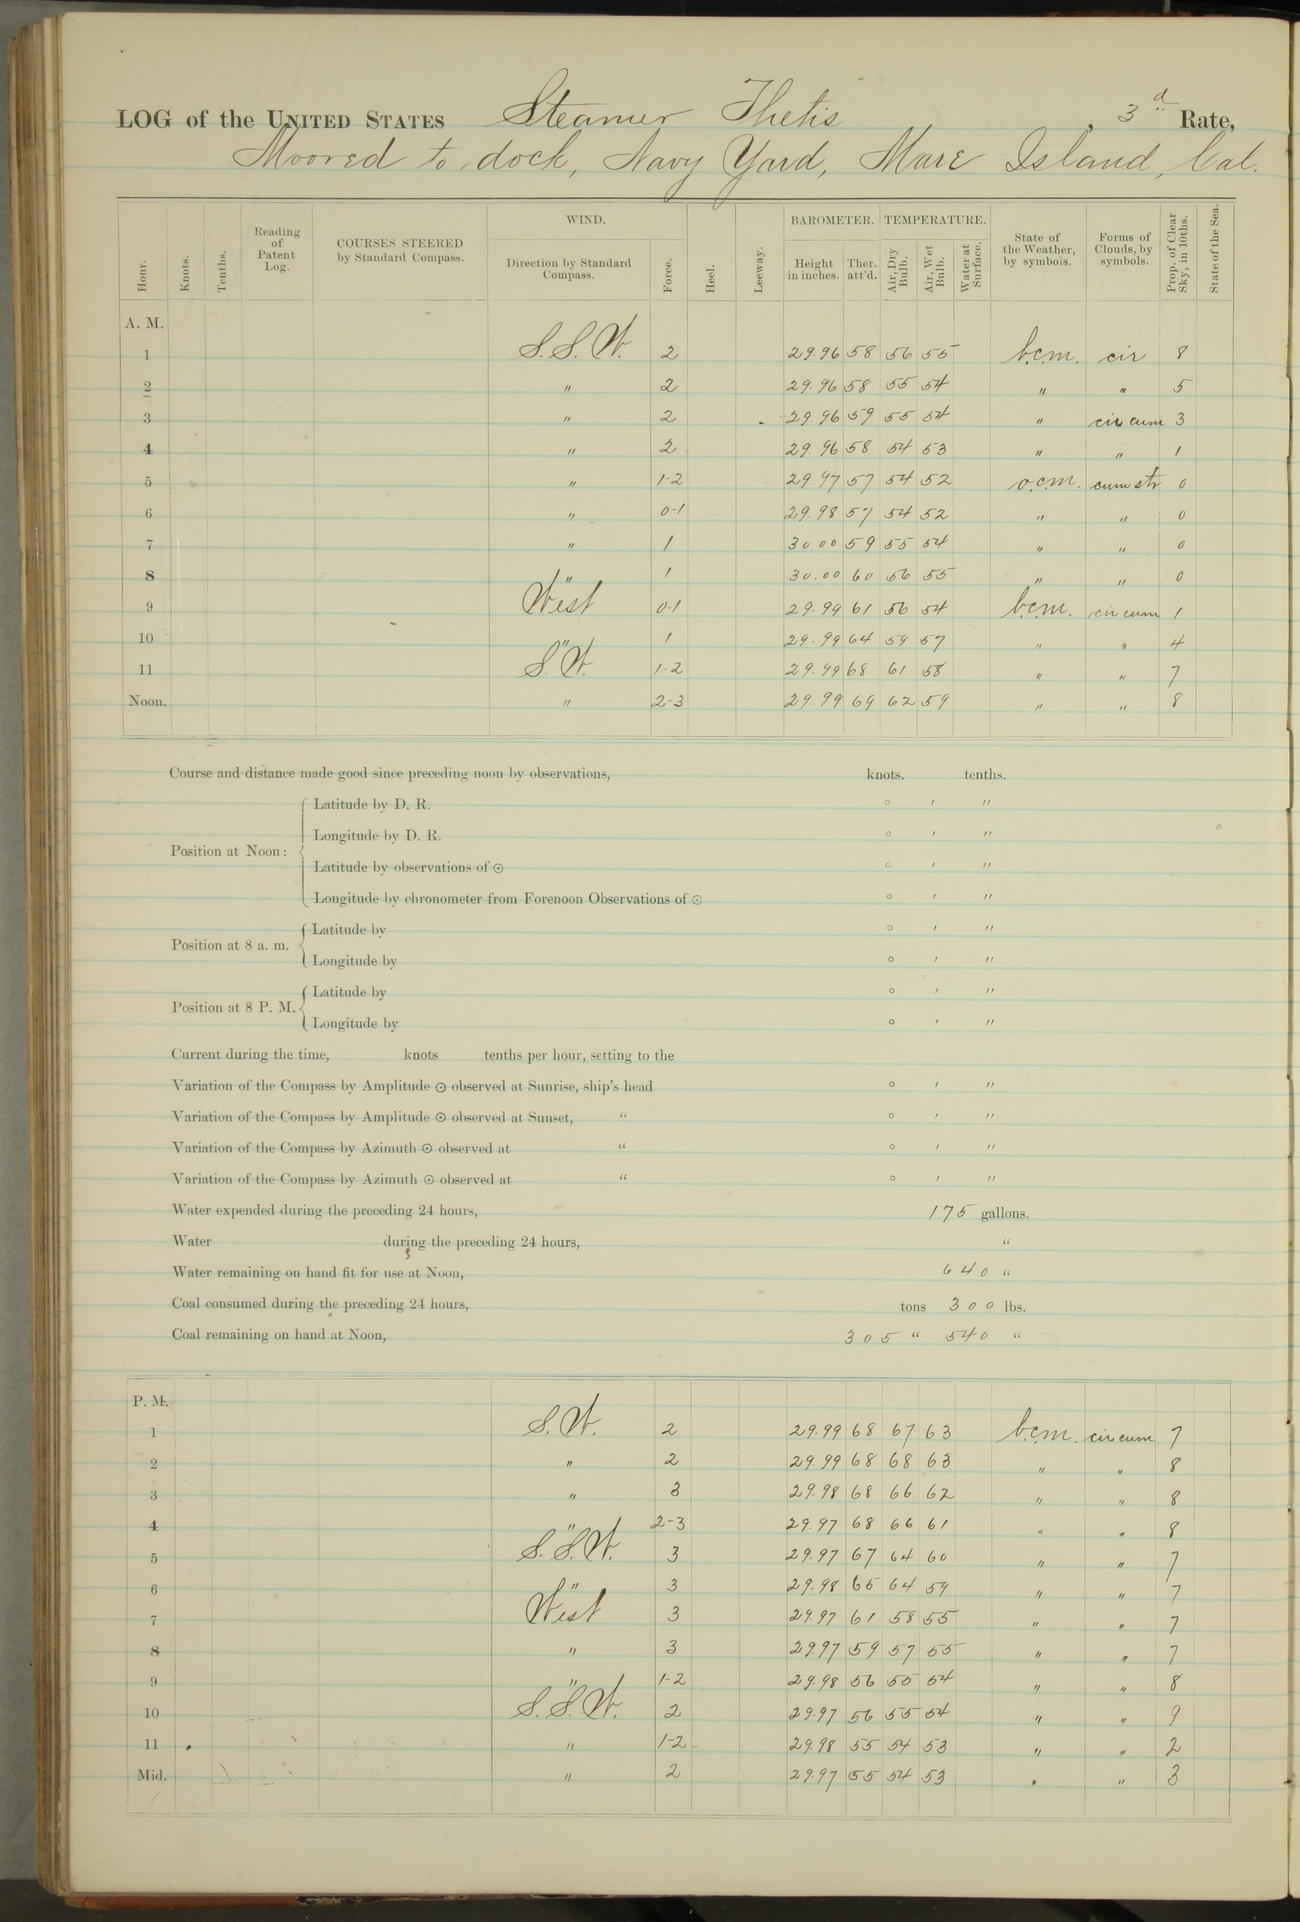 LOG of the UNITED STATES Steamer Thetis , 3d Rate,
Moored to dock, Navy Yard, Mare Island, Cal.
Hour. Knots. Tenths. Reading of Patent Log. COURSES STEERED by Standard Compass. WIND. Direction by Standard Compass. Force. Heel. Leeway. BAROMETER. Height in inches. Ther. att'd. TEMPERATURE. Air, Dry Bulb. Air, Wet Bulb. Water at Surface. State of the Weather, by symbols. Forms of Clouds, by symbols. Prop. of Clear Sky, in 10ths. State of the Sea.
A. M.
1 S.S.W. 2 29.96 58 56 55 b.c.m. cir 8
2 " 2 29.96 58 55 54 " " 5
3 " 2 29.96 59 55 54 " cir cum 3
4 " 2 29.96 58 54 53 " " 1
5 " 1-2 29 97 57 54 52 o.c.m. cum str 0
6 " 0-1 29.98 57 54 52 " " 0
7 " 1 30 00 59 55 54 " " 0
8 " 1 30.00 60 56 55 " " 0
9 West 0-1 29.99 61 56 54 b.c.m. cir cum 1
10 " 1 29.99 64 59 57 " " 4
11 S.W. 1-2 29.99 68 61 58 " " 7
Noon. " 2-3 29.99 69 62 59 " " 8
Course and distance made good since preceding noon by observations, knots. tenths.
Latitude by D. R. ° ' "
Longitude by D. R. ° ' "
Position at Noon:
Latitude by observations of ☉ ° ' "
Longitude by chronometer from Forenoon Observations of ☉ ° ' "
Latitude by ° ' "
Position at 8 a. m.
Longitude by ° ' "
Latitude by ° ' "
Position at 8 P. M.
Longitude by ° ' "
Current during the time, knots tenths per hour, setting to the
Variation of the Compass by Amplitude ☉ observed at Sunrise, ship's head ° ' "
Variation of the Compass by Amplitude ☉ observed at Sunset, " ° ' "
Variation of the Compass by Azimuth ☉ observed at " ° ' "
Variation of the Compass by Azimuth ☉ observed at " ° ' "
Water expended during the preceding 24 hours, 175 gallons.
Water during the preceding 24 hours, "
Water remaining on hand fit for use at Noon, 640 "
Coal consumed during the preceding 24 hours, tons 300 lbs.
Coal remaining on hand at Noon, 305 " 540 "
P. M.
1 S.W. 2 29.99 68 67 63 b.c.m. cir cum 7
2 " 2 29.99 68 68 63 " " 8
3 " 3 29.98 68 66 62 " " 8
4 " 2-3 29.97 68 66 61 " " 8
5 S.S.W. 3 29.97 67 64 60 " " 7
6 " 3 29.98 65 64 59 " " 7
7 West 3 29.97 61 58 55 " " 7
8 " 3 29.97 59 57 55 " " 7
9 " 1-2 29.98 56 55 54 " " 8
10 S.S.W. 2 29.97 56 55 54 " " 9
11 " 1-2 29.98 55 54 53 " " 2
Mid. " 2 29.97 55 54 53 " " 3